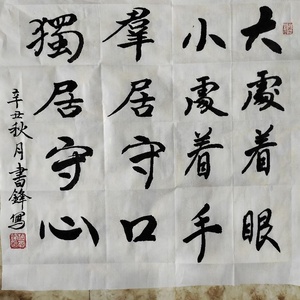 大處着眼
小處着手
羣居守口
獨居守心
辛丑秋月書鋒寫